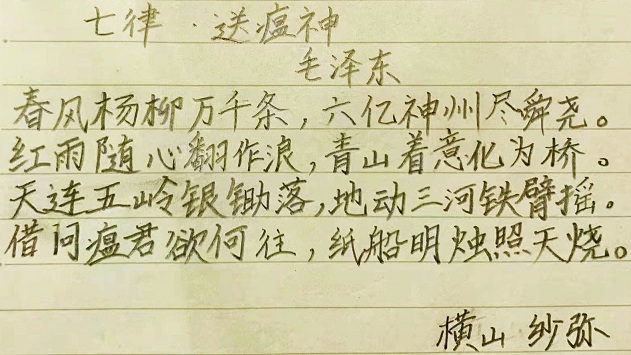 七律·送瘟神
毛泽东
春风杨柳万千条，六亿神州尽舜尧。
红雨随心翻作浪，青山着意化为桥。
天连五岭银锄落，地动三河铁臂摇。
借问瘟君欲何往，纸船明烛照天烧。
横山 纱弥